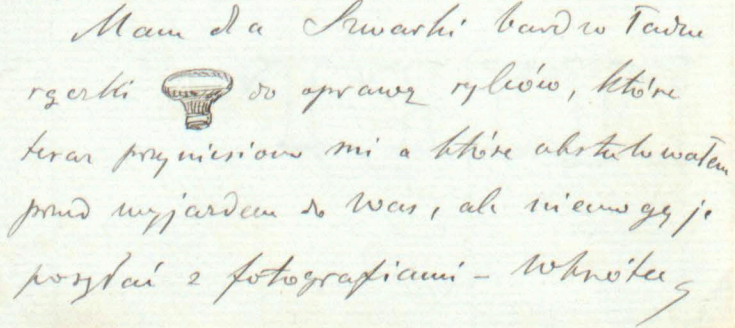 Mam dla Szwarki bardzo ładne
rączki do oprawy rylców, które
teraz przyniesiono mi a które obstalowałem
przed wyjazdem do Was, ale niemogę je
posyłać z fotografiami – Wkrótce